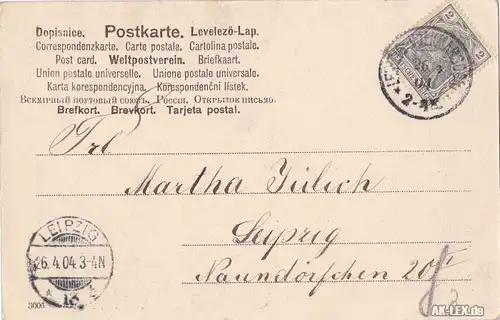 Dopisnice. Postkarte. Levelező-Lap.
Correspondenzkarte. Carte postale. Cartolina postale.
Post card. Weltpostverein. Briefkaart.
Union postale universelle. Unione postale universale.
Karta korespondencyjna. Korespondenční lístek.
Всемірный почтовый союзъ. Россія. Открытое письмо.
Brefkort. Brevkort. Tarjeta postal.
2 2
26 4
04
2-
Frl
Martha Jülich
Leipzig
Naundörfchen 20
LEIPZIG
26.4.04.3-4N
3006
AK-LEX.de